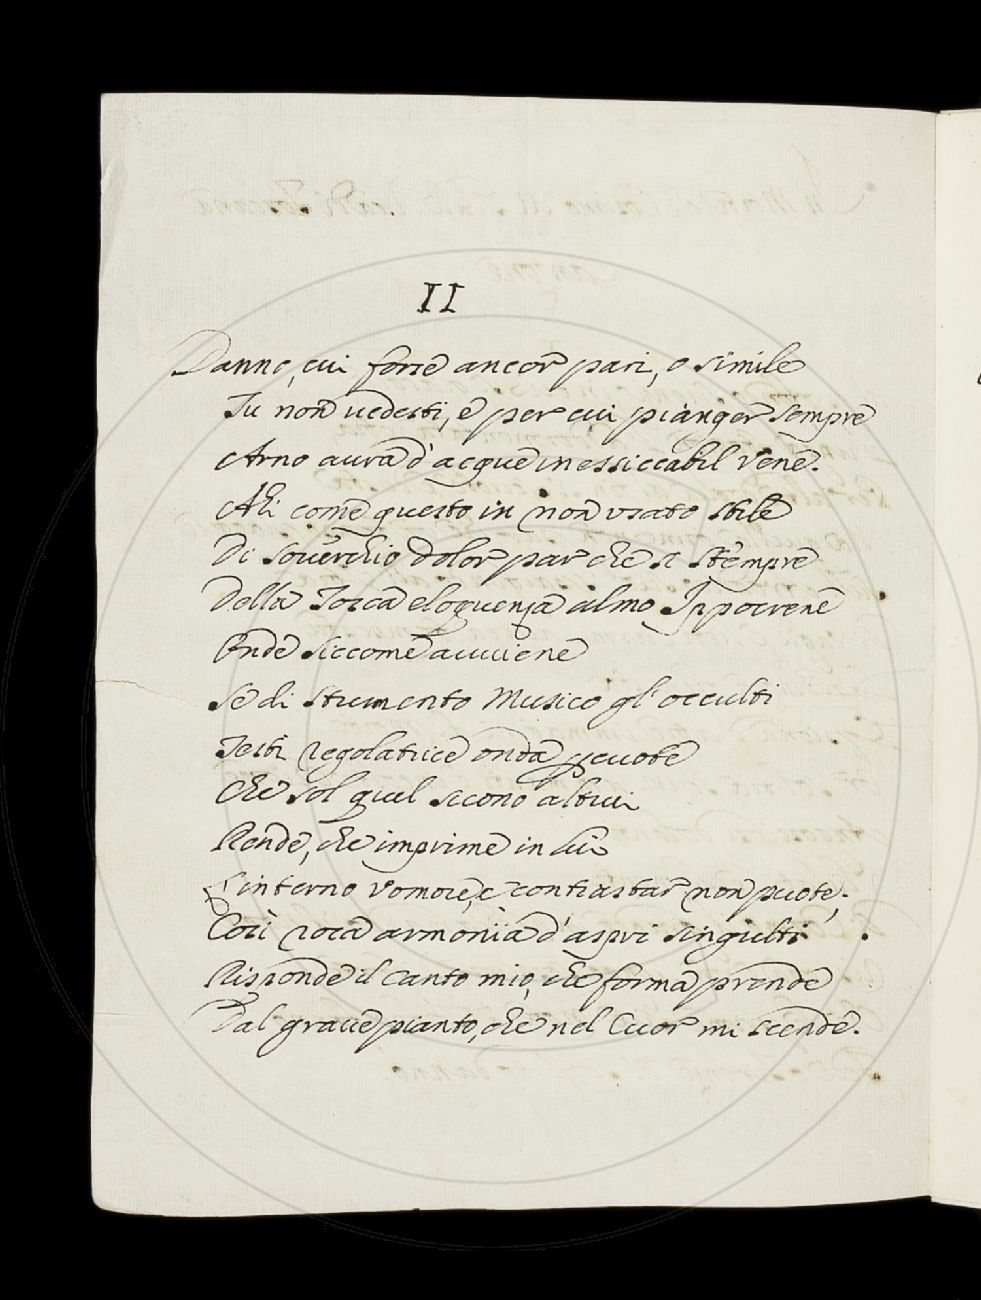 II
Danno, cui forse ancor pari, o simile
Tu non vedesti, e per cui pianger sempre
Arno aura d'acque inessiccabil vene.
Ahi come questo in non usato stile
Di soverchio dolor par che si stempre
Della Tosca eloquenza almo Ippocrene
Onde siccome avviene
Se di strumento Musico gl'occulti
Testi regolatrice onda percuote
Che sol quel suono altrui
Rende, che imprime in lui
L'interno Vomore, e contrastar non puote;
Così roca armonia d'aspri singulti
Risponde il Canto mio, che forma prende
Dal grave pianto, che nel Cuor mi scende.